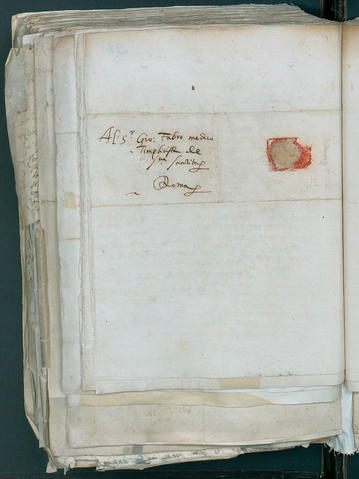 Al S.r Gio: Fabro medico
Simplicista de
Sua Santità
Roma